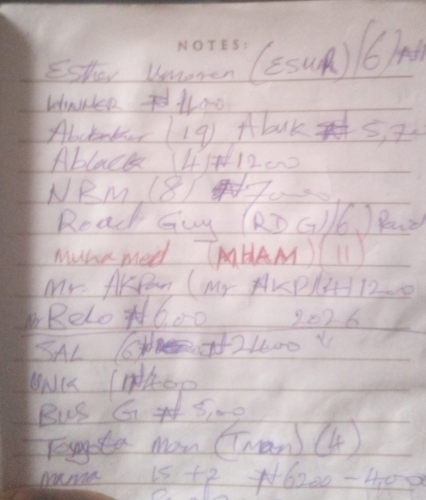 NOTES:
Esther (ESUR) (6)
WINNER ₦
Abubakar (19) Abuk ₦ 5,7
Ablack (4) ₦1200
NRM (8) ₦7000
Road Guy (RDG) (6) Paid
Muhamed (MHAM) (11)
Mr. AKPan (Mr AKP) (4) 1200
Mr Belo ₦6,00 2026
SAL (6) ₦2400
UNK
BUS G ₦ 5,00
Man (Tman) (4)
mama 15 +2 ₦6200 - 4,000